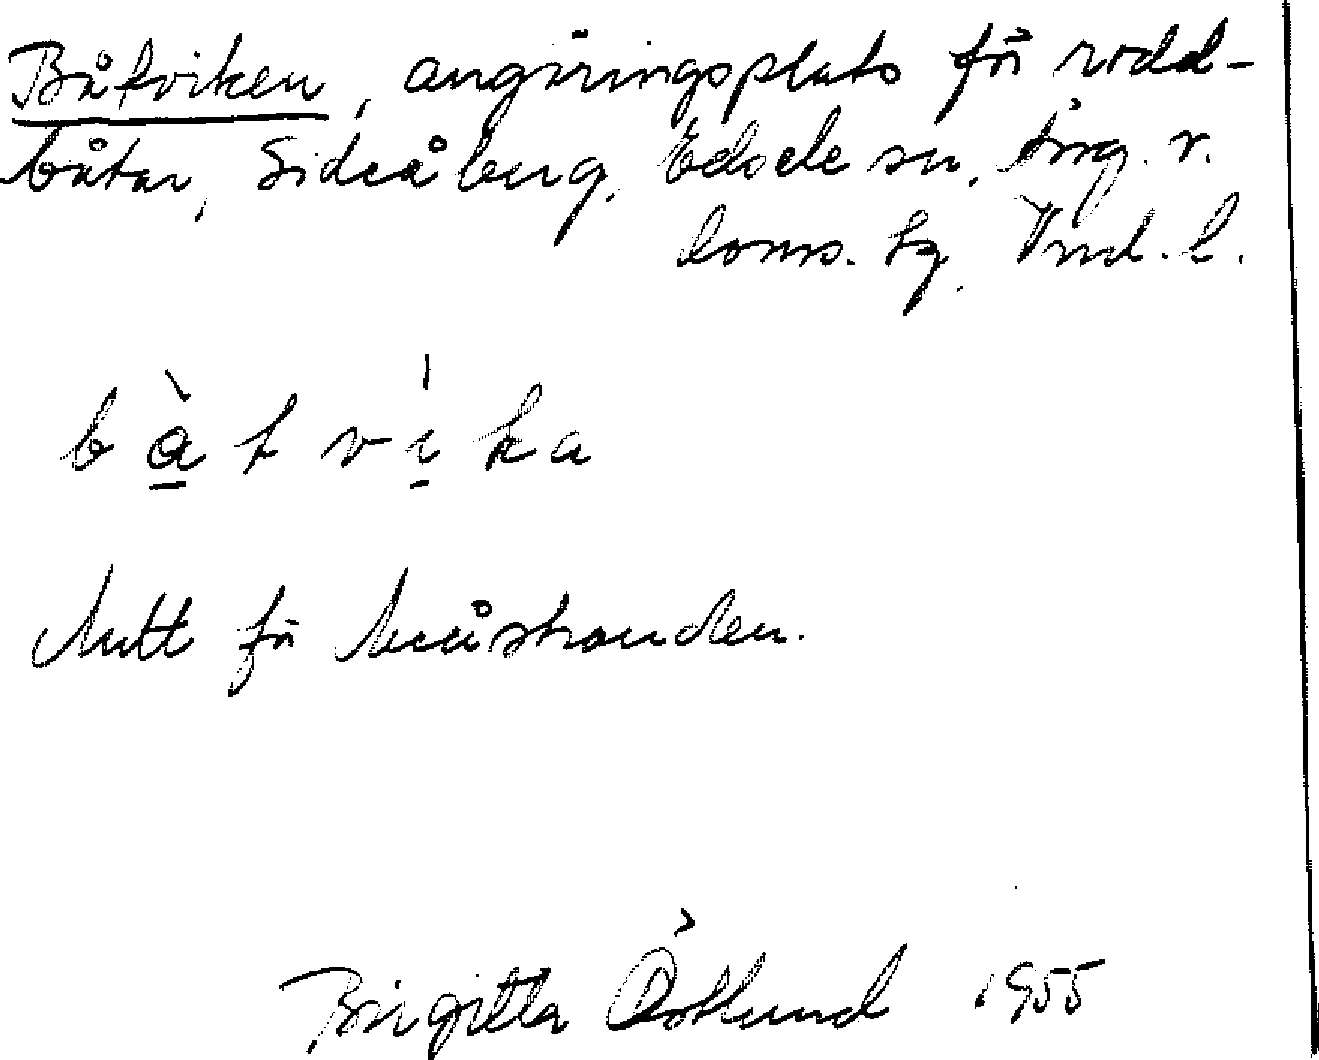 Båtviken, angöringsplats för rodd-
båtar, Sidsåberg, Edsele sn, Ång. v.
doms. hg. Vnd. l.
bàtvìka
Mitt för Meåstranden.
Birgitta Östlund 1955